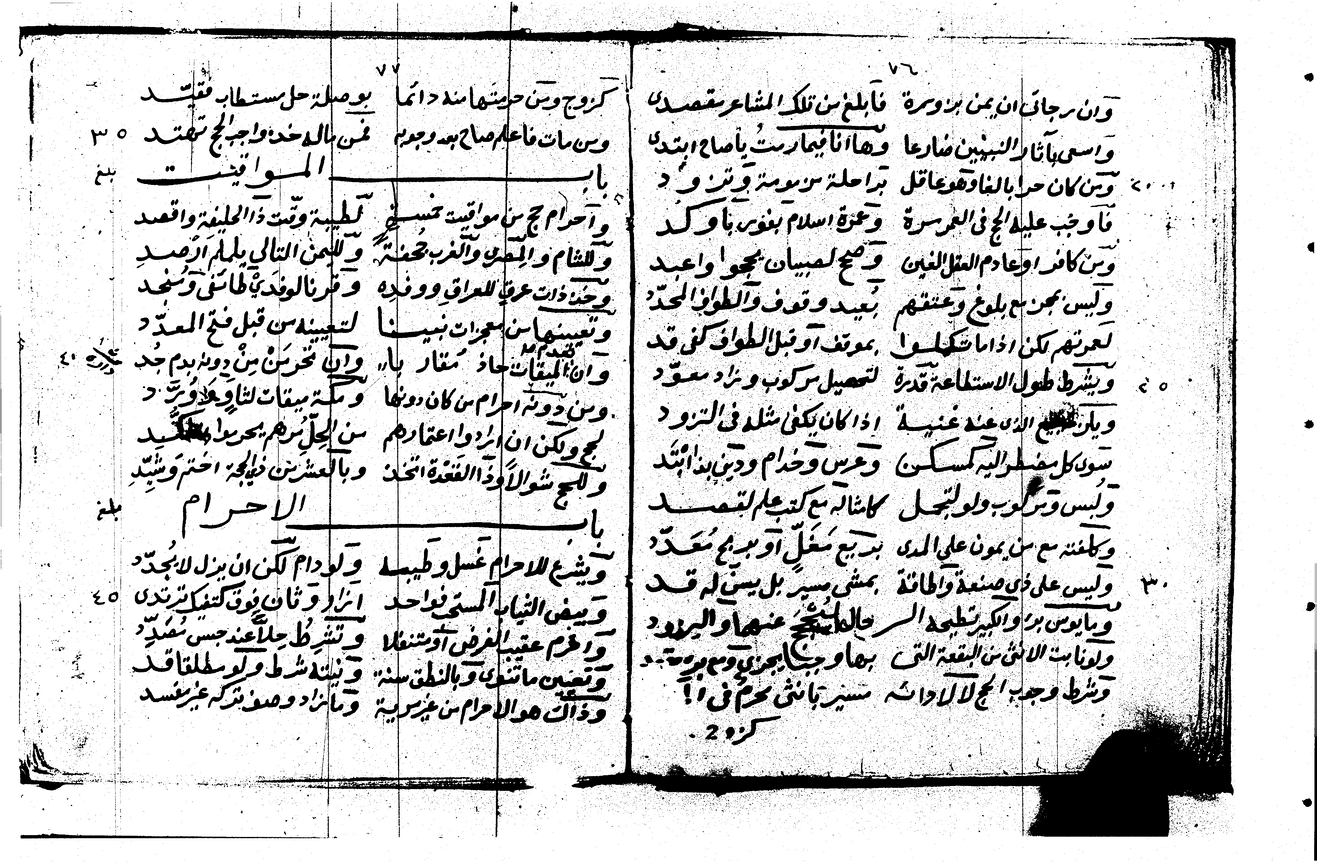 ٧٦
وان رجائي ان يمن بزورة فأبلغ من تلك المشاعر مقصدى
واسعى بآثار النبيين ضارعا وها انا فيما رمت يا صاح ابتدى
ومن كان حرا بالغا وهو عاقل براحلة مزمومة وتزود
فاوجب عليه الحج فى العمر مرة وعمرة اسلام بفور باوكد
ومن كافر او عادم العقل الغين وصح لصبيان يحجوا واعبد
وليس بمجز مع بلوغ وعتقهم بعيد وقوف والطواف المحدد
لعمرتهم لكن اذا ما تكملوا بموقف او قبل الطواف كفى قد
ويشرط طول الاستطاعة قدرة لتحصيل مركوب وزاد معود
ويلزم الذى عنه غنية اذا كان يكفى مثله فى التزود
سوى كل مضطر اليه كمسكن وعرس وخدام ودين
ولبس ومركوب ولو لتجمل كامثاله مع كتب علم لقصد
وكلفته مع من يمون على المدى بريع مغل او بربح معدد
وليس على ذى صنعة واطاقة بمشى مسير بل يسن له قد
ومايوس برء والكبير عنهما والردد
ولو نابت الانثى من البقعة التى بها وجبا يجزى
وشرط وجوب الحج لا لادائه مسير بانثى محرم فى
كزو
٢٥
٣٠
٧٧
كزوج ومن حرمتها منه دائما بوصلة حل مستطاب فقيد
ومن مات فاعلم صاح بعد وجوبه فمن ماله خذ واجب الحج تهتد
٣٥
باب المواقيت
بلغ
واحرام حج من مواقيت خمسة لطيبة وقت ذا الحليفة واقصد
وللشام والمصرى والغرب جحفة ولليمن التالى يلملم ارصد
وخذ ذات عرق للعراق ووفده وقرنا لوفد طائفى ومنجد
وتعيينها من معجزات نبينا لتعيينه من قبل فتح المعدد
وان الميقات حاذ مقاربا وان تحرمن من دونه بدم جد
٤٠
ومن دونه احرام من كان دونها ومكة ميقات لثاو
لحج ولكن ان ارادوا اعتمارهم من الحل مرهم يحرموا
وللحج شوالا وذا القعدة اتخذ وبالعشر من ذى الحجة اختم وشيد
باب الاحرام
بلغ
ويشرع للاحرام غسل وطيبه ولو دام لكن ان يزل لا يجدد
وبيض الثياب المستحب فواحد ازار وثان فوق كتفيك ترتدى
٤٥
واحرم عقيب الفرض او متنفلا وتشرط حلا عند حبس مصدد
وتعيين ما تنوى وبالنطق سنة وبنيته شرط ولو مطلقا قد
وذاك هو الاحرام من غير مرية وما زاد وصف تركه غير مفسد